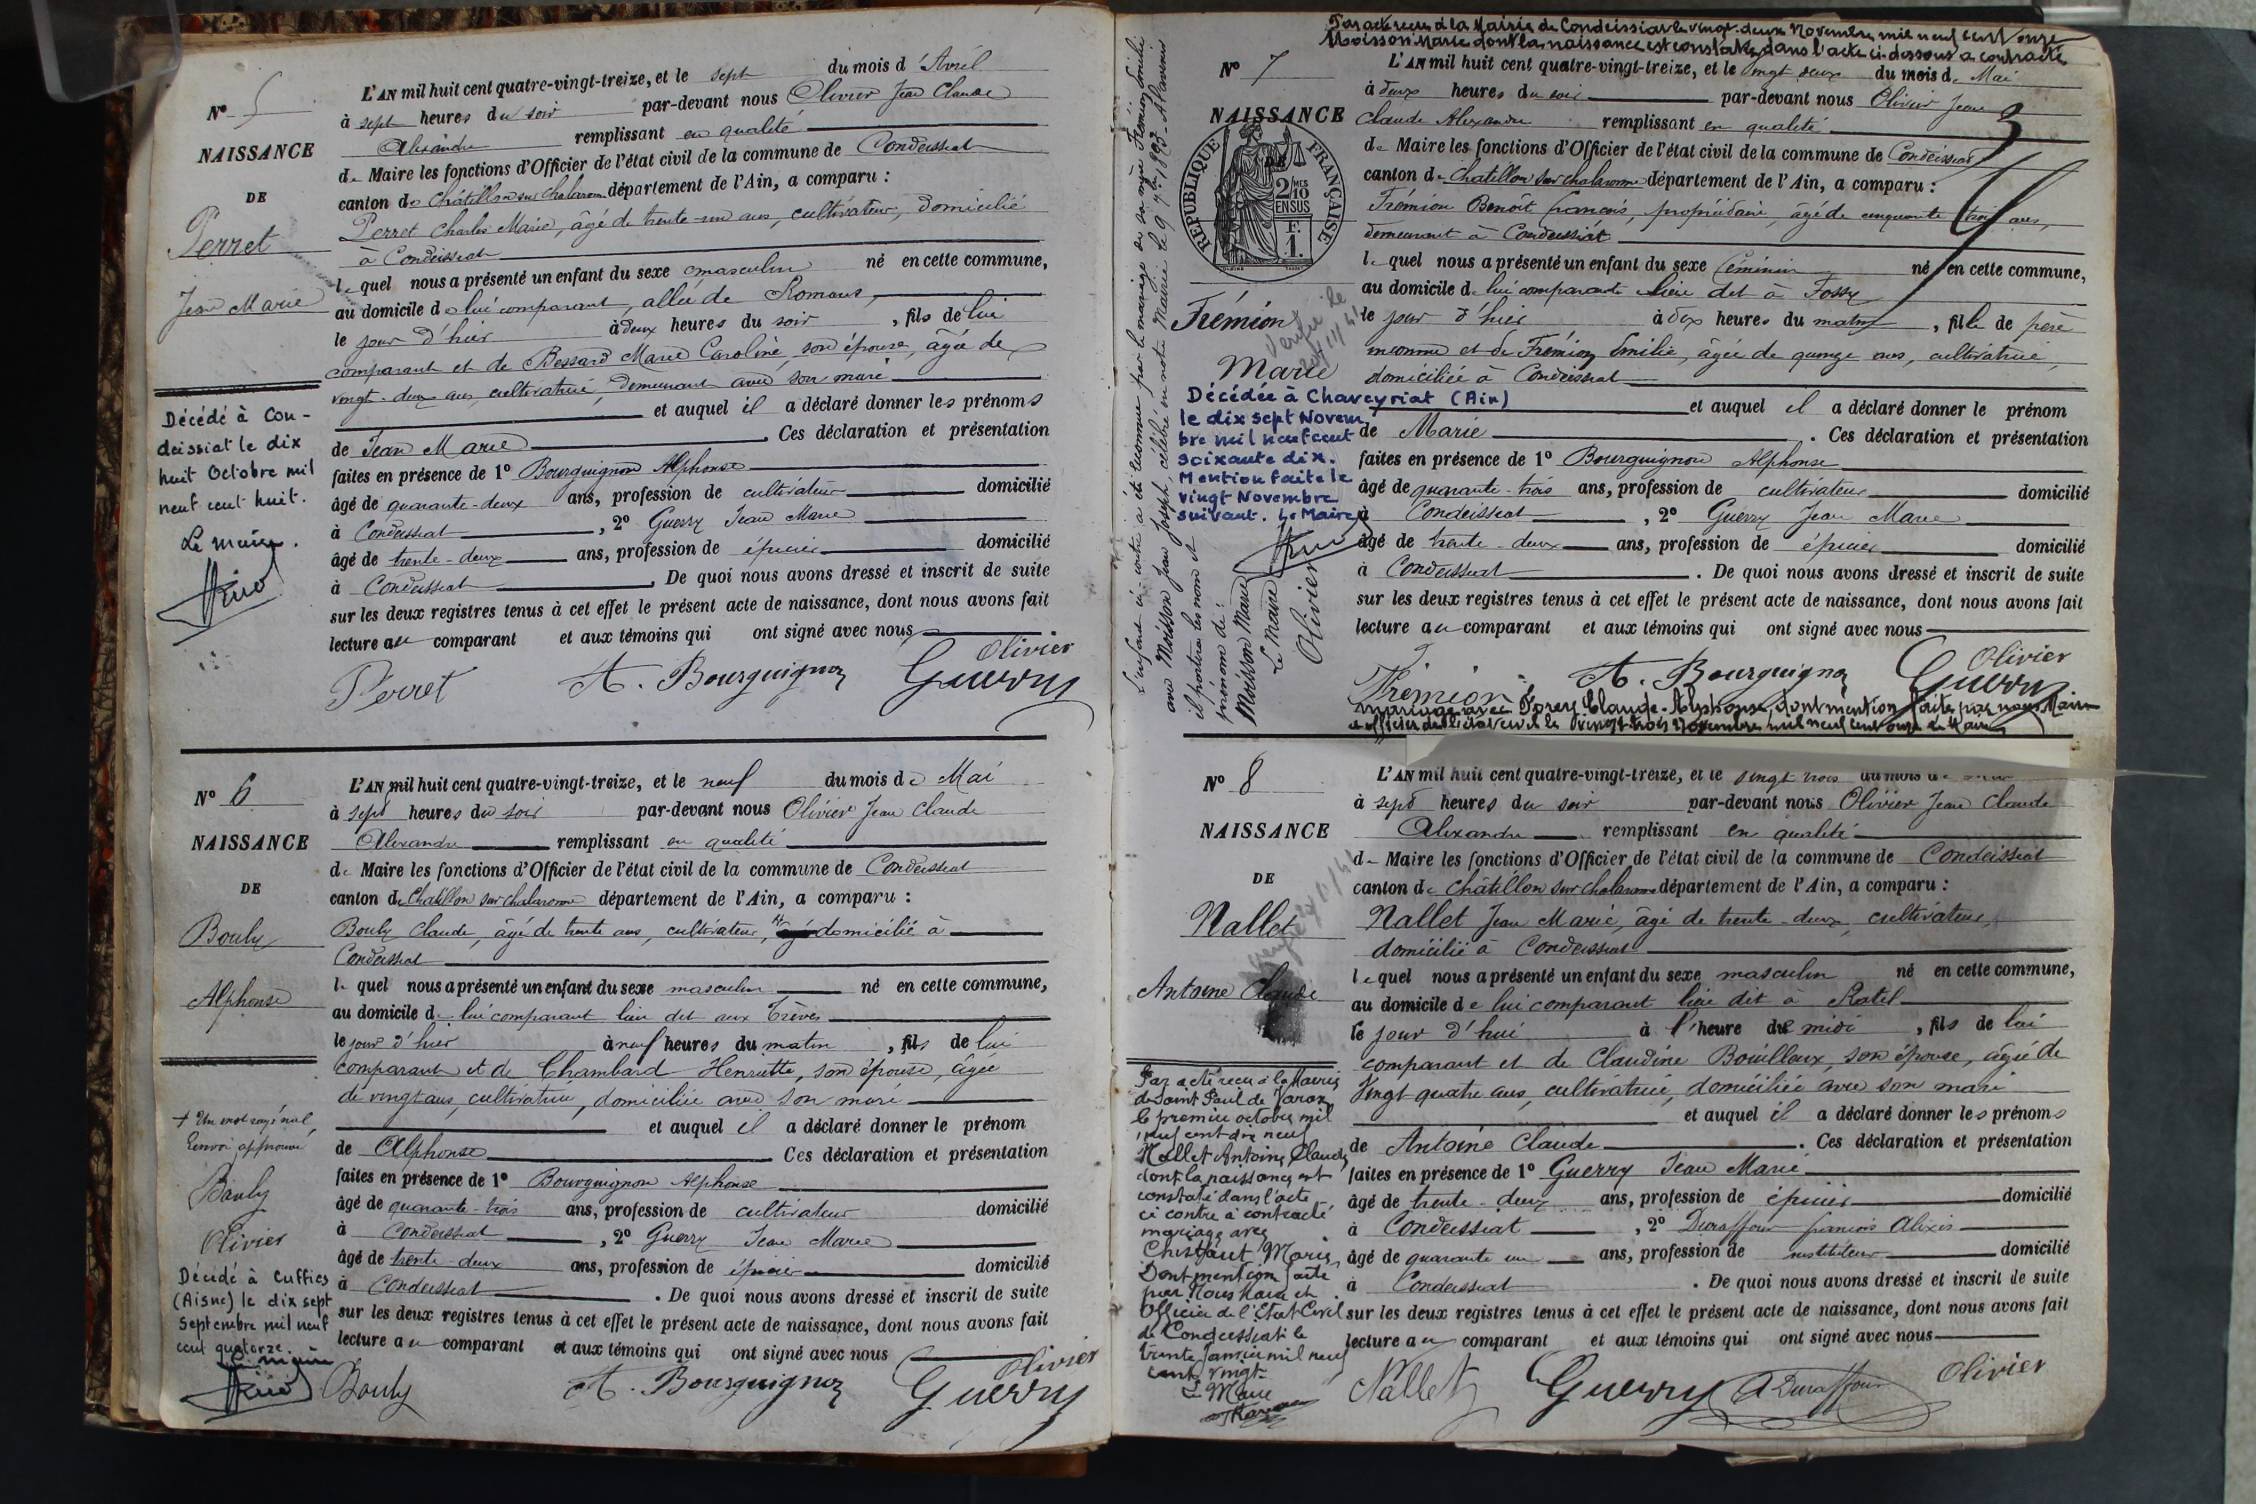 N° 5
NAISSANCE
DE
Perret
Jean Marie
Décédé à Con-
deissiat le dix
huit Octobre mil
neuf cent huit.
Le maire.
L'AN mil huit cent quatre-vingt-treize, et le sept du mois d'Avril
à sept heures du soir par-devant nous Olivier Jean Claude
Alexandre remplissant en qualité
de Maire les fonctions d'Officier de l'état civil de la commune de Condeissiat
canton de Châtillon sur Chalaronne département de l'Ain, a comparu :
Perret Charles Marie, âgé de trente-un ans, cultivateur, domicilié
à Condeissiat
lequel nous a présenté un enfant du sexe masculin né en cette commune,
au domicile de lui comparant, allée de Romans,
le jour d'hier à deux heures du soir, fils de lui
comparant et de Bessard Marie Caroline, son épouse, âgée de
vingt-deux ans, cultivatrice, demeurant avec son mari
et auquel il a déclaré donner les prénoms
de Jean Marie. Ces déclaration et présentation
faites en présence de 1° Bourguignon Alphonse
âgé de quarante-deux ans, profession de cultivateur domicilié
à Condeissiat, 2° Guerry Jean Marie
âgé de trente-deux ans, profession de épicier domicilié
à Condeissiat. De quoi nous avons dressé et inscrit de suite
sur les deux registres tenus à cet effet le présent acte de naissance, dont nous avons fait
lecture au comparant et aux témoins qui ont signé avec nous
Perret A. Bourguignon Guerry Olivier
N° 6
NAISSANCE
DE
Bouly
Alphonse
+ Un mot rayé nul,
Renvoi approuvé
Bouly
Olivier
Décédé à Cuffies
(Aisne) le dix sept
Septembre mil neuf
cent quatorze.
Le maire
L'AN mil huit cent quatre-vingt-treize, et le neuf du mois de Mai
à sept heures du soir par-devant nous Olivier Jean Claude
Alexandre remplissant en qualité
de Maire les fonctions d'Officier de l'état civil de la commune de Condeissiat
canton de Chatillon sur Chalaronne département de l'Ain, a comparu :
Bouly Claude, âgé de trente ans, cultivateur, domicilié à
Condeissiat
lequel nous a présenté un enfant du sexe masculin né en cette commune,
au domicile de lui comparant lieu dit aux Trèves
le jour d'hier à neuf heures du matin, fils de lui
comparant et de Chambard Henriette, son épouse, âgée
de vingt ans, cultivatrice, domiciliée avec son mari
et auquel il a déclaré donner le prénom
de Alphonse Ces déclaration et présentation
faites en présence de 1° Bourguignon Alphonse
âgé de quarante-trois ans, profession de cultivateur domicilié
à Condeissiat, 2° Guerry Jean Marie
âgé de trente-deux ans, profession de épicier domicilié
à Condeissiat. De quoi nous avons dressé et inscrit de suite
sur les deux registres tenus à cet effet le présent acte de naissance, dont nous avons fait
lecture au comparant et aux témoins qui ont signé avec nous
Bouly A. Bourguignon Guerry Olivier
Par acte reçu à la Mairie de Condeissiat le vingt-deux Novembre mil neuf cent onze
Moisson Marie dont la naissance est constatée dans l'acte ci-dessous a contracté
N° 7
NAISSANCE
RÉPUBLIQUE FRANÇAISE
2/10 MES
EN SUS
1 F.
Frémion
Marie
Vérifié le
Décédée à Chaveyriat (Ain)
le dix sept Novem
bre mil neuf cent
soixante dix.
Mention faite le
vingt Novembre
suivant. Le Maire
L'enfant ci-contre a été reconnue par le mariage de sa mère Frémion Emilie
avec Moisson Jean Joseph, célébré en notre Mairie le 9 7bre 1893. A l'avenir
il portera les nom et
prénom de:
Moisson Marie
Le Maire
Olivier
L'AN mil huit cent quatre-vingt-treize, et le vingt deux du mois de Mai
à deux heures du soir par-devant nous Olivier Jean
Claude Alexandre remplissant en qualité
de Maire les fonctions d'Officier de l'état civil de la commune de Condeissiat
canton de Chatillon sur Chalaronne département de l'Ain, a comparu :
Frémion Benoît François, propriétaire, âgé de cinquante trois ans,
demeurant à Condeissiat
lequel nous a présenté un enfant du sexe féminin né en cette commune,
au domicile de lui comparant lieu dit à Fossy
le jour d'hier à dix heures du matin, fille de père
inconnu et de Frémion Emilie, âgée de quinze ans, cultivatrice,
domiciliée à Condeissiat
et auquel il a déclaré donner le prénom
de Marie. Ces déclaration et présentation
faites en présence de 1° Bourguignon Alphonse
âgé de quarante-trois ans, profession de cultivateur domicilié
à Condeissiat, 2° Guerry Jean Marie
âgé de trente-deux ans, profession de épicier domicilié
à Condeissiat. De quoi nous avons dressé et inscrit de suite
sur les deux registres tenus à cet effet le présent acte de naissance, dont nous avons fait
lecture au comparant et aux témoins qui ont signé avec nous
Frémion A. Bourguignon Guerry Olivier
mariage avec Claude-Alphonse, dont mention faite par nous Maire
officier de l'état civil le vingt-trois Novembre mil neuf cent onze Le Maire
N° 8
NAISSANCE
DE
Nallet
Antoine Claude
Par acte reçu à la Mairie
de Saint Paul de Varax
le premier octobre mil
neuf cent dix neuf
Nallet Antoine Claude
dont la naissance est
constaté dans l'acte
ci contre a contracté
mariage avec
Marie,
Dont mention faite
par Nous Maire et
Officier de l'Etat Civil
de Condeissiat le
trente Janvier mil neuf
cent vingt
Le Maire
L'AN mil huit cent quatre-vingt-treize, et le vingt trois du mois de
à sept heures du soir par-devant nous Olivier Jean Claude
Alexandre remplissant en qualité
de Maire les fonctions d'Officier de l'état civil de la commune de Condeissiat
canton de Châtillon sur Chalaronne département de l'Ain, a comparu :
Nallet Jean Marie, âgé de trente-deux, cultivateur,
domicilié à Condeissiat
lequel nous a présenté un enfant du sexe masculin né en cette commune,
au domicile de lui comparant lieu dit à Ratel
le jour d'hui à l'heure de midi, fils de lui
comparant et de Claudine Bouilloux, son épouse, âgée de
Vingt quatre ans, cultivatrice, domiciliée avec son mari
et auquel il a déclaré donner les prénoms
de Antoine Claude. Ces déclaration et présentation
faites en présence de 1° Guerry Jean Marie
âgé de trente-deux ans, profession de épicier domicilié
à Condeissiat, 2° Duraffour François Alexis
âgé de quarante un ans, profession de instituteur domicilié
à Condeissiat. De quoi nous avons dressé et inscrit de suite
sur les deux registres tenus à cet effet le présent acte de naissance, dont nous avons fait
lecture au comparant et aux témoins qui ont signé avec nous
Nallet Guerry A Duraffour Olivier